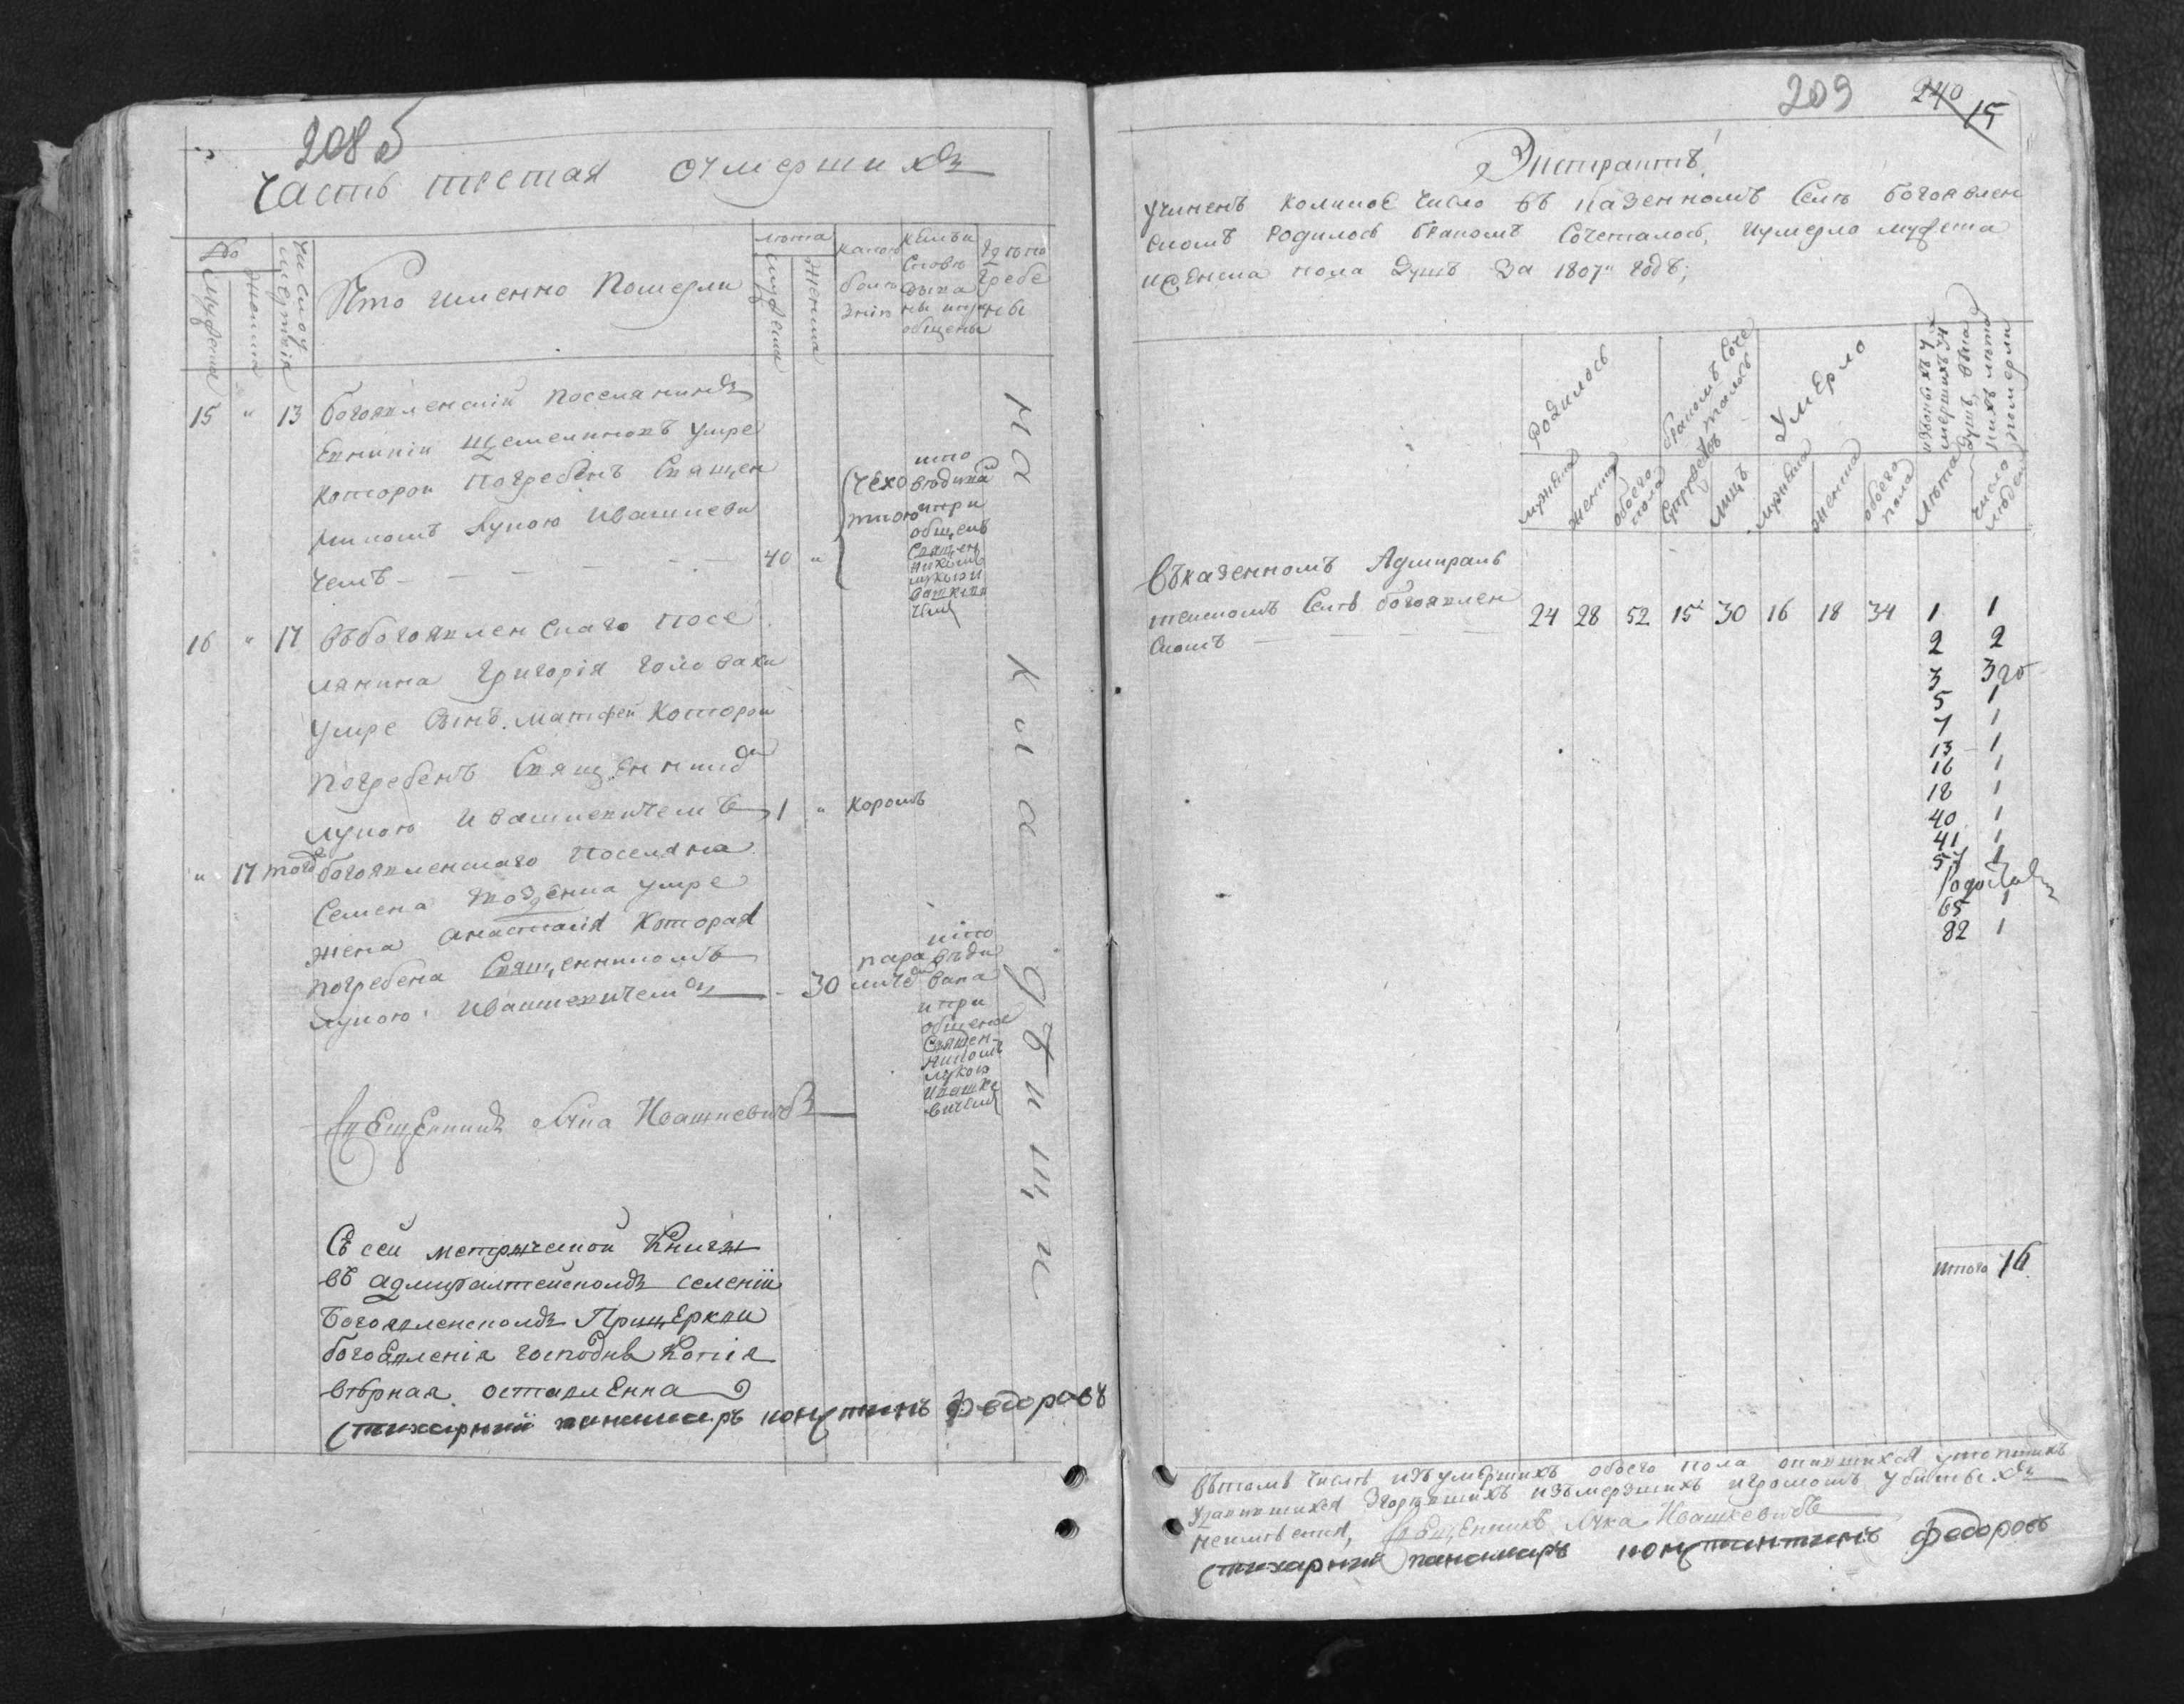 208 об
Часть третая о умершихъ
№
мужеска
женска
Число у
смертвія
Кто именно Померли
лѣта
мужеска
женска
какою
болѣ
знію
кемъ и
сповѣ
дыва
ны и при
общены
Гдѣ по
гребе
ны
15 " 13 богоявленскій поселянинъ
умре
которои погребенъ Священ
никомъ Лукою Ивашкеви
чемъ — — — — — 40 "
чехо
ткою
испо
вѣдыва
и при
общенъ
Священ
никомъ
лукою И
вашкеви
чемъ
16 " 17 въ богоявленскаго посе
лянина Григорія
умре сынъ Матфей которои
погребенъ Священникомъ
лукою Ивашкевичемъ 1 " коромъ
" 17 тогожъ богоявленскаго поселяна
Семена умре
жена анастасія которая
погребена Священникомъ
лукою Ивашкевичемъ — - 30
пара
личемъ
испо
вѣды
вана
и при
общена
Священ-
никомъ
лукою
Ивашке
вичемъ
на кладбищи
Священникъ Лука Ивашкевичъ
Съ сеи метрическои Книги
въ адмиралтейскомъ селеніи
Богоявленскомъ При церкви
богоявленія господня Копія
вѣрная оставленна
Стихарный панамаръ Федоровъ
209 240 15
Экстрактъ
учиненъ Коликое число въ казенномъ Селѣ богоявлен
скомъ Родилось бракомъ Сочеталось, и умерло мужеска
и женска пола душъ За 1807й годъ;
Родилось
мужска
женска
обоего
пола
бракомъ Соче
талось
Супружествъ
лицъ
Умерло
мужска
женска
обоего
пола
мершихъ 34
душъ
померли
Лѣта
число
людей
Въ казенномъ Адмирал
тейскомъ Селѣ богоявлен
скомъ — — — —
24 28 52 15 30 16 18 34 1 1
2 2
3 3
5 1
7 1
13 1
16 1
18 1
40 1
41 1
57 1
65 1
82 1
итого 16
Въ томъ числѣ изъ умершихъ обоего пола опившихся утопшихъ
удавившихся Згорѣвшихъ измерзшихъ и громомъ убитыхъ
неимѣется, Священникъ Лука Ивашкевичъ
Стихарный панамаръ константинъ Федоровъ